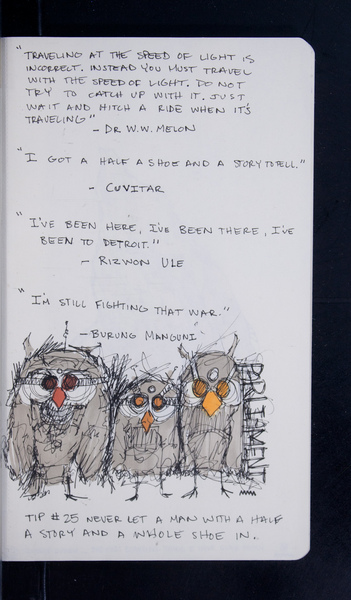 "TRAVELING AT THE SPEED OF LIGHT IS
INCORRECT. INSTEAD YOU MUST TRAVEL
WITH THE SPEED OF LIGHT. DO NOT
TRY TO CATCH UP WITH IT. JUST
WAIT AND HITCH A RIDE WHEN IT'S
TRAVELING"
- DR W.W. MELON
"I GOT A HALF A SHOE AND A STORY TO TELL."
- CUVITAR
"I'VE BEEN HERE, I'VE BEEN THERE, I'VE
BEEN TO DETROIT."
- RIZWON ULE
"I'M STILL FIGHTING THAT WAR."
- BURUNG MANGUNI
PARLIEMENT
TIP #25 NEVER LET A MAN WITH A HALF
A STORY AND A WHOLE SHOE IN.